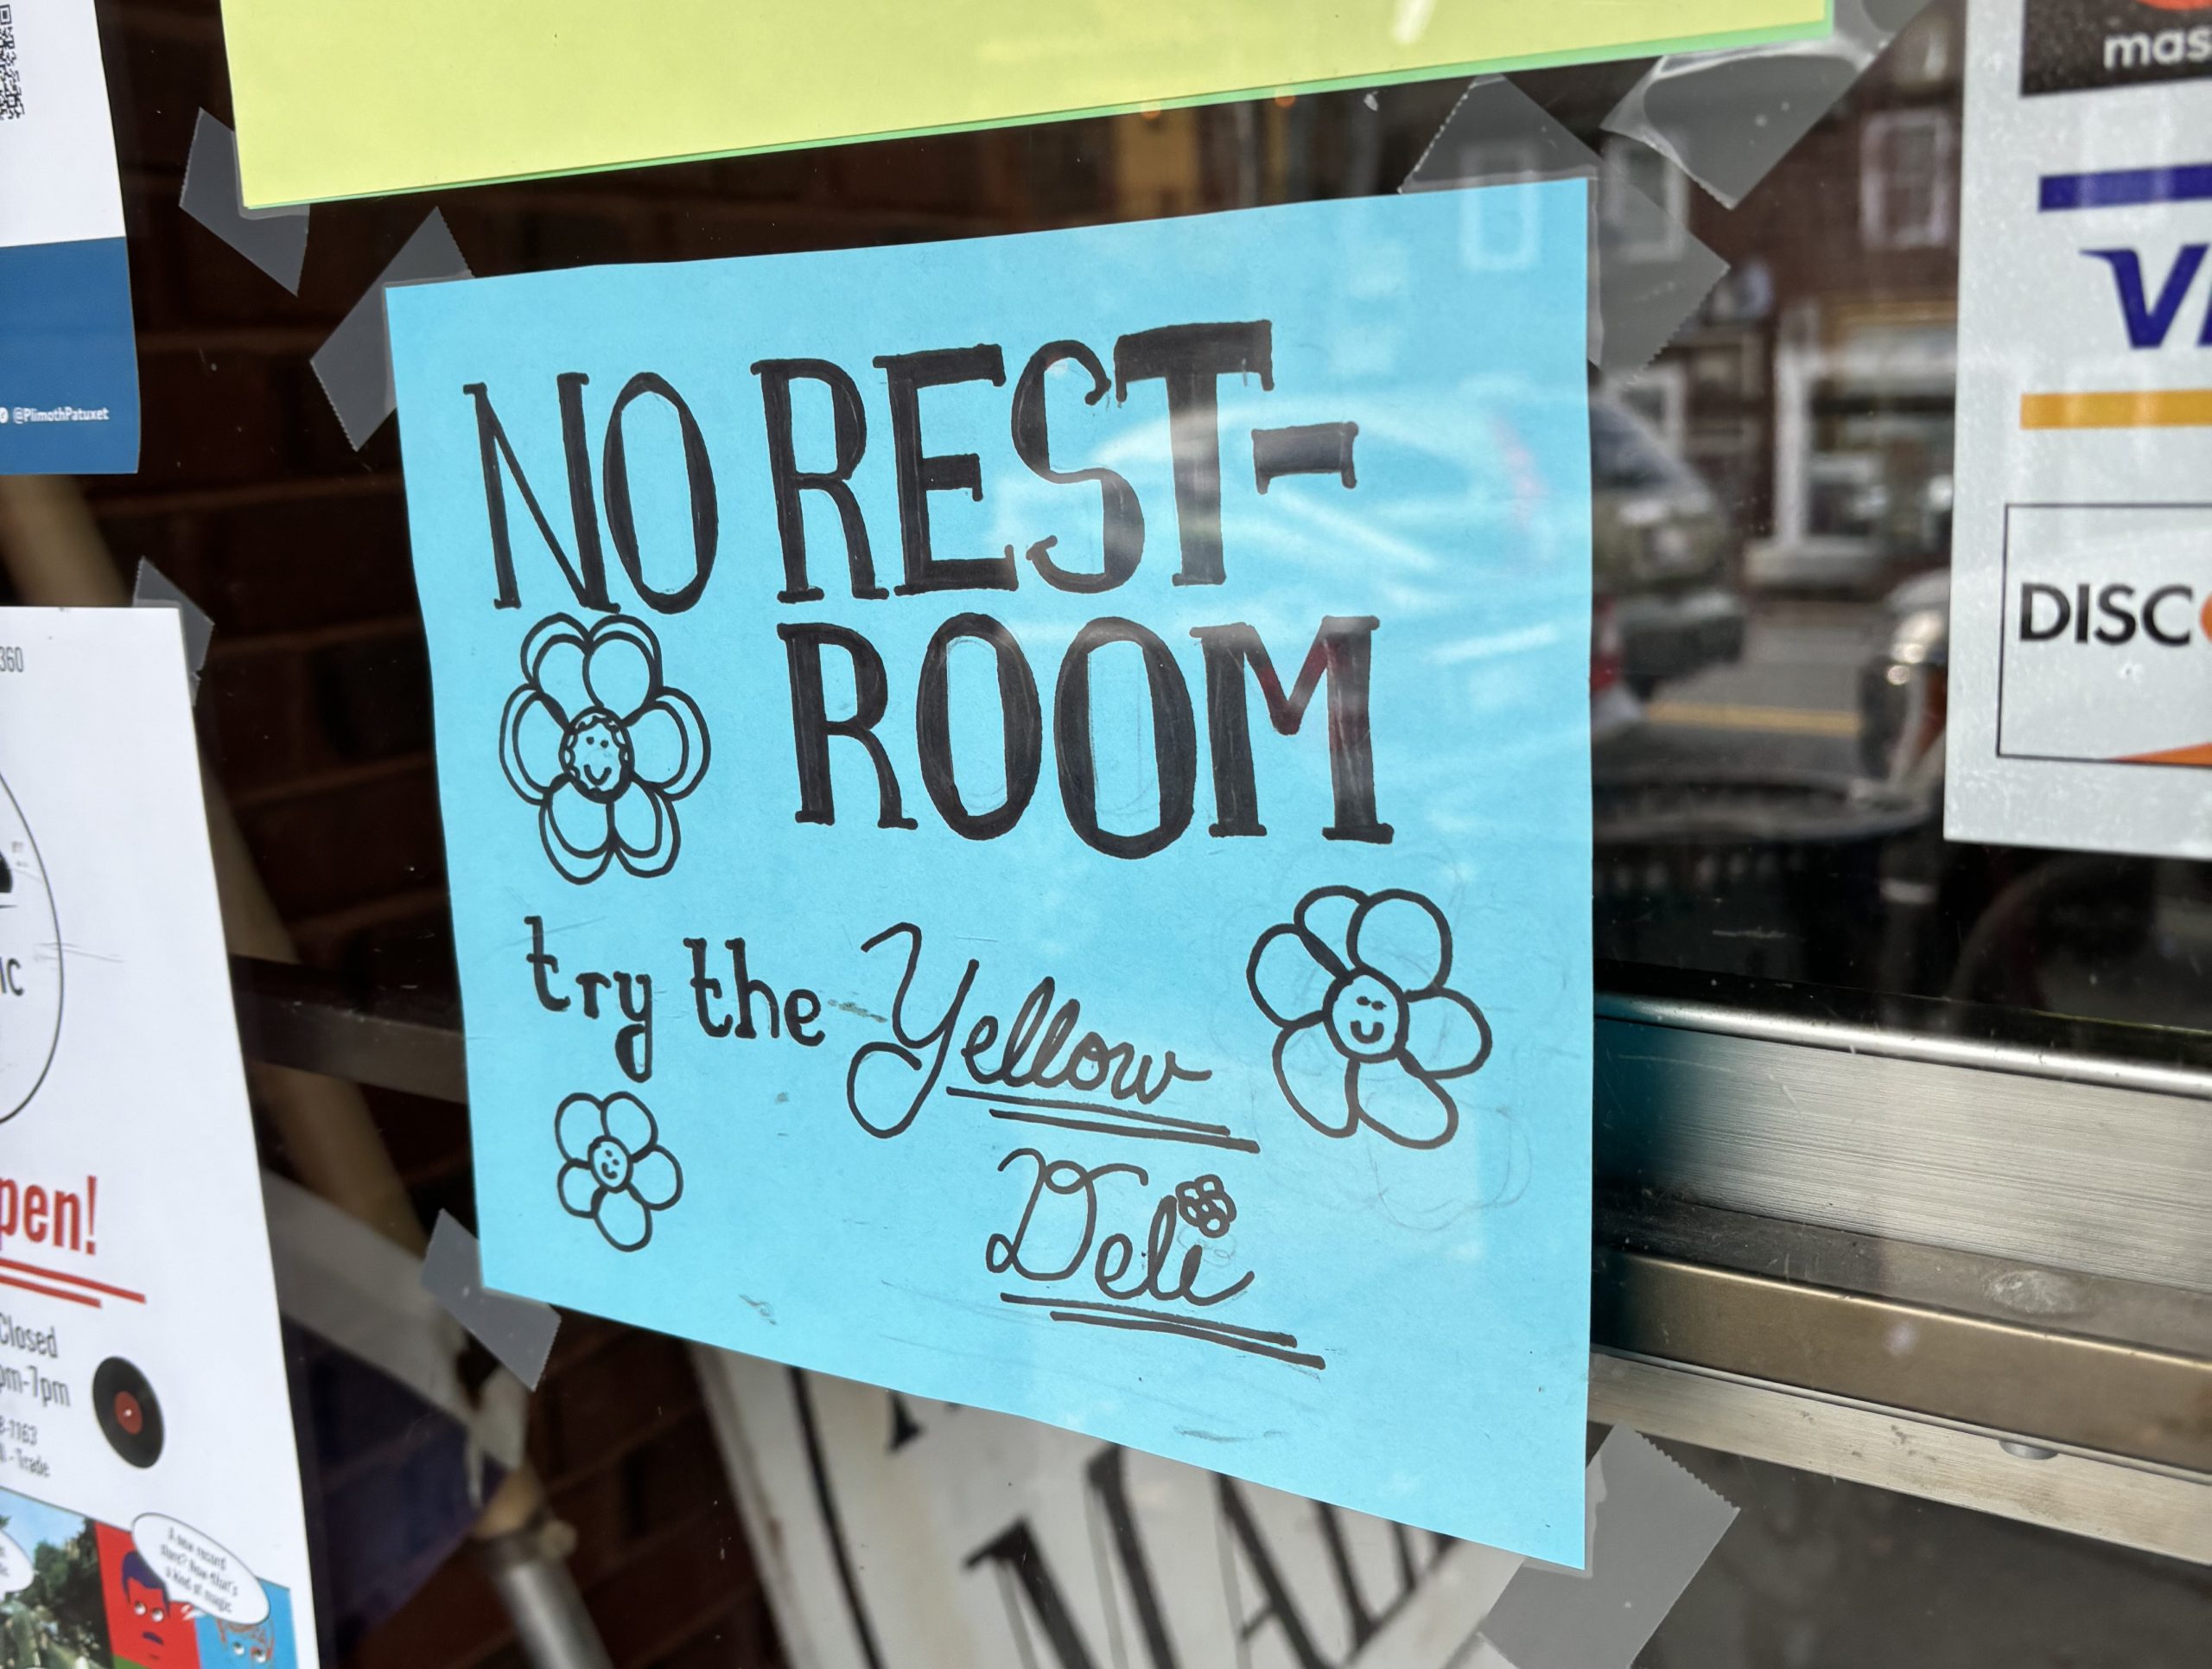 NO REST-
ROOM
try the Yellow
Deli
@PlimothPatuxet
360
IC
pen!
Closed
pm-7pm
-7163
- Trade
A new record
store? Now that's
a kind of magic
mas
VI
DISC